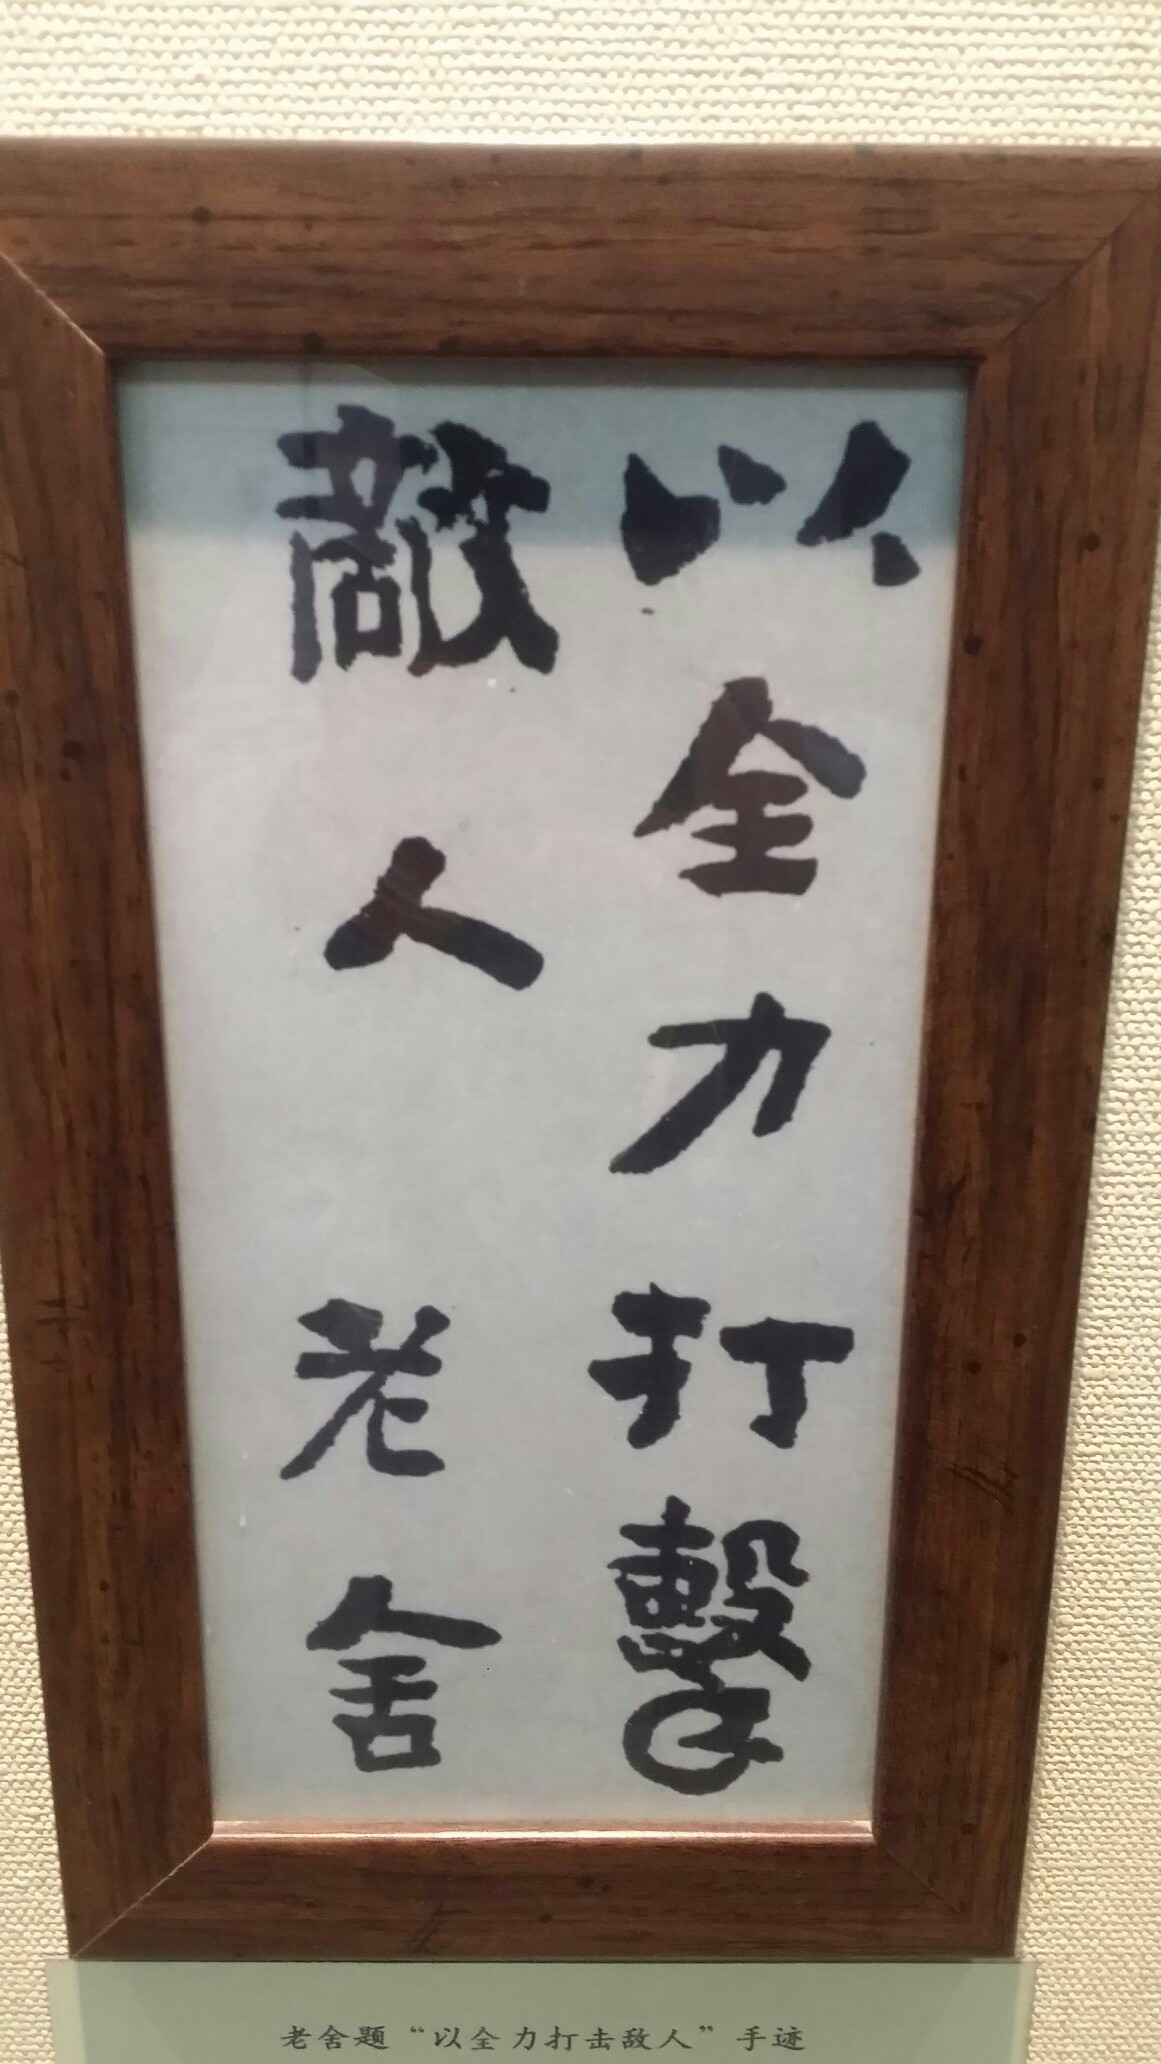 以全力打擊
敵人 老舍
老舍题“以全力打击敌人”手迹